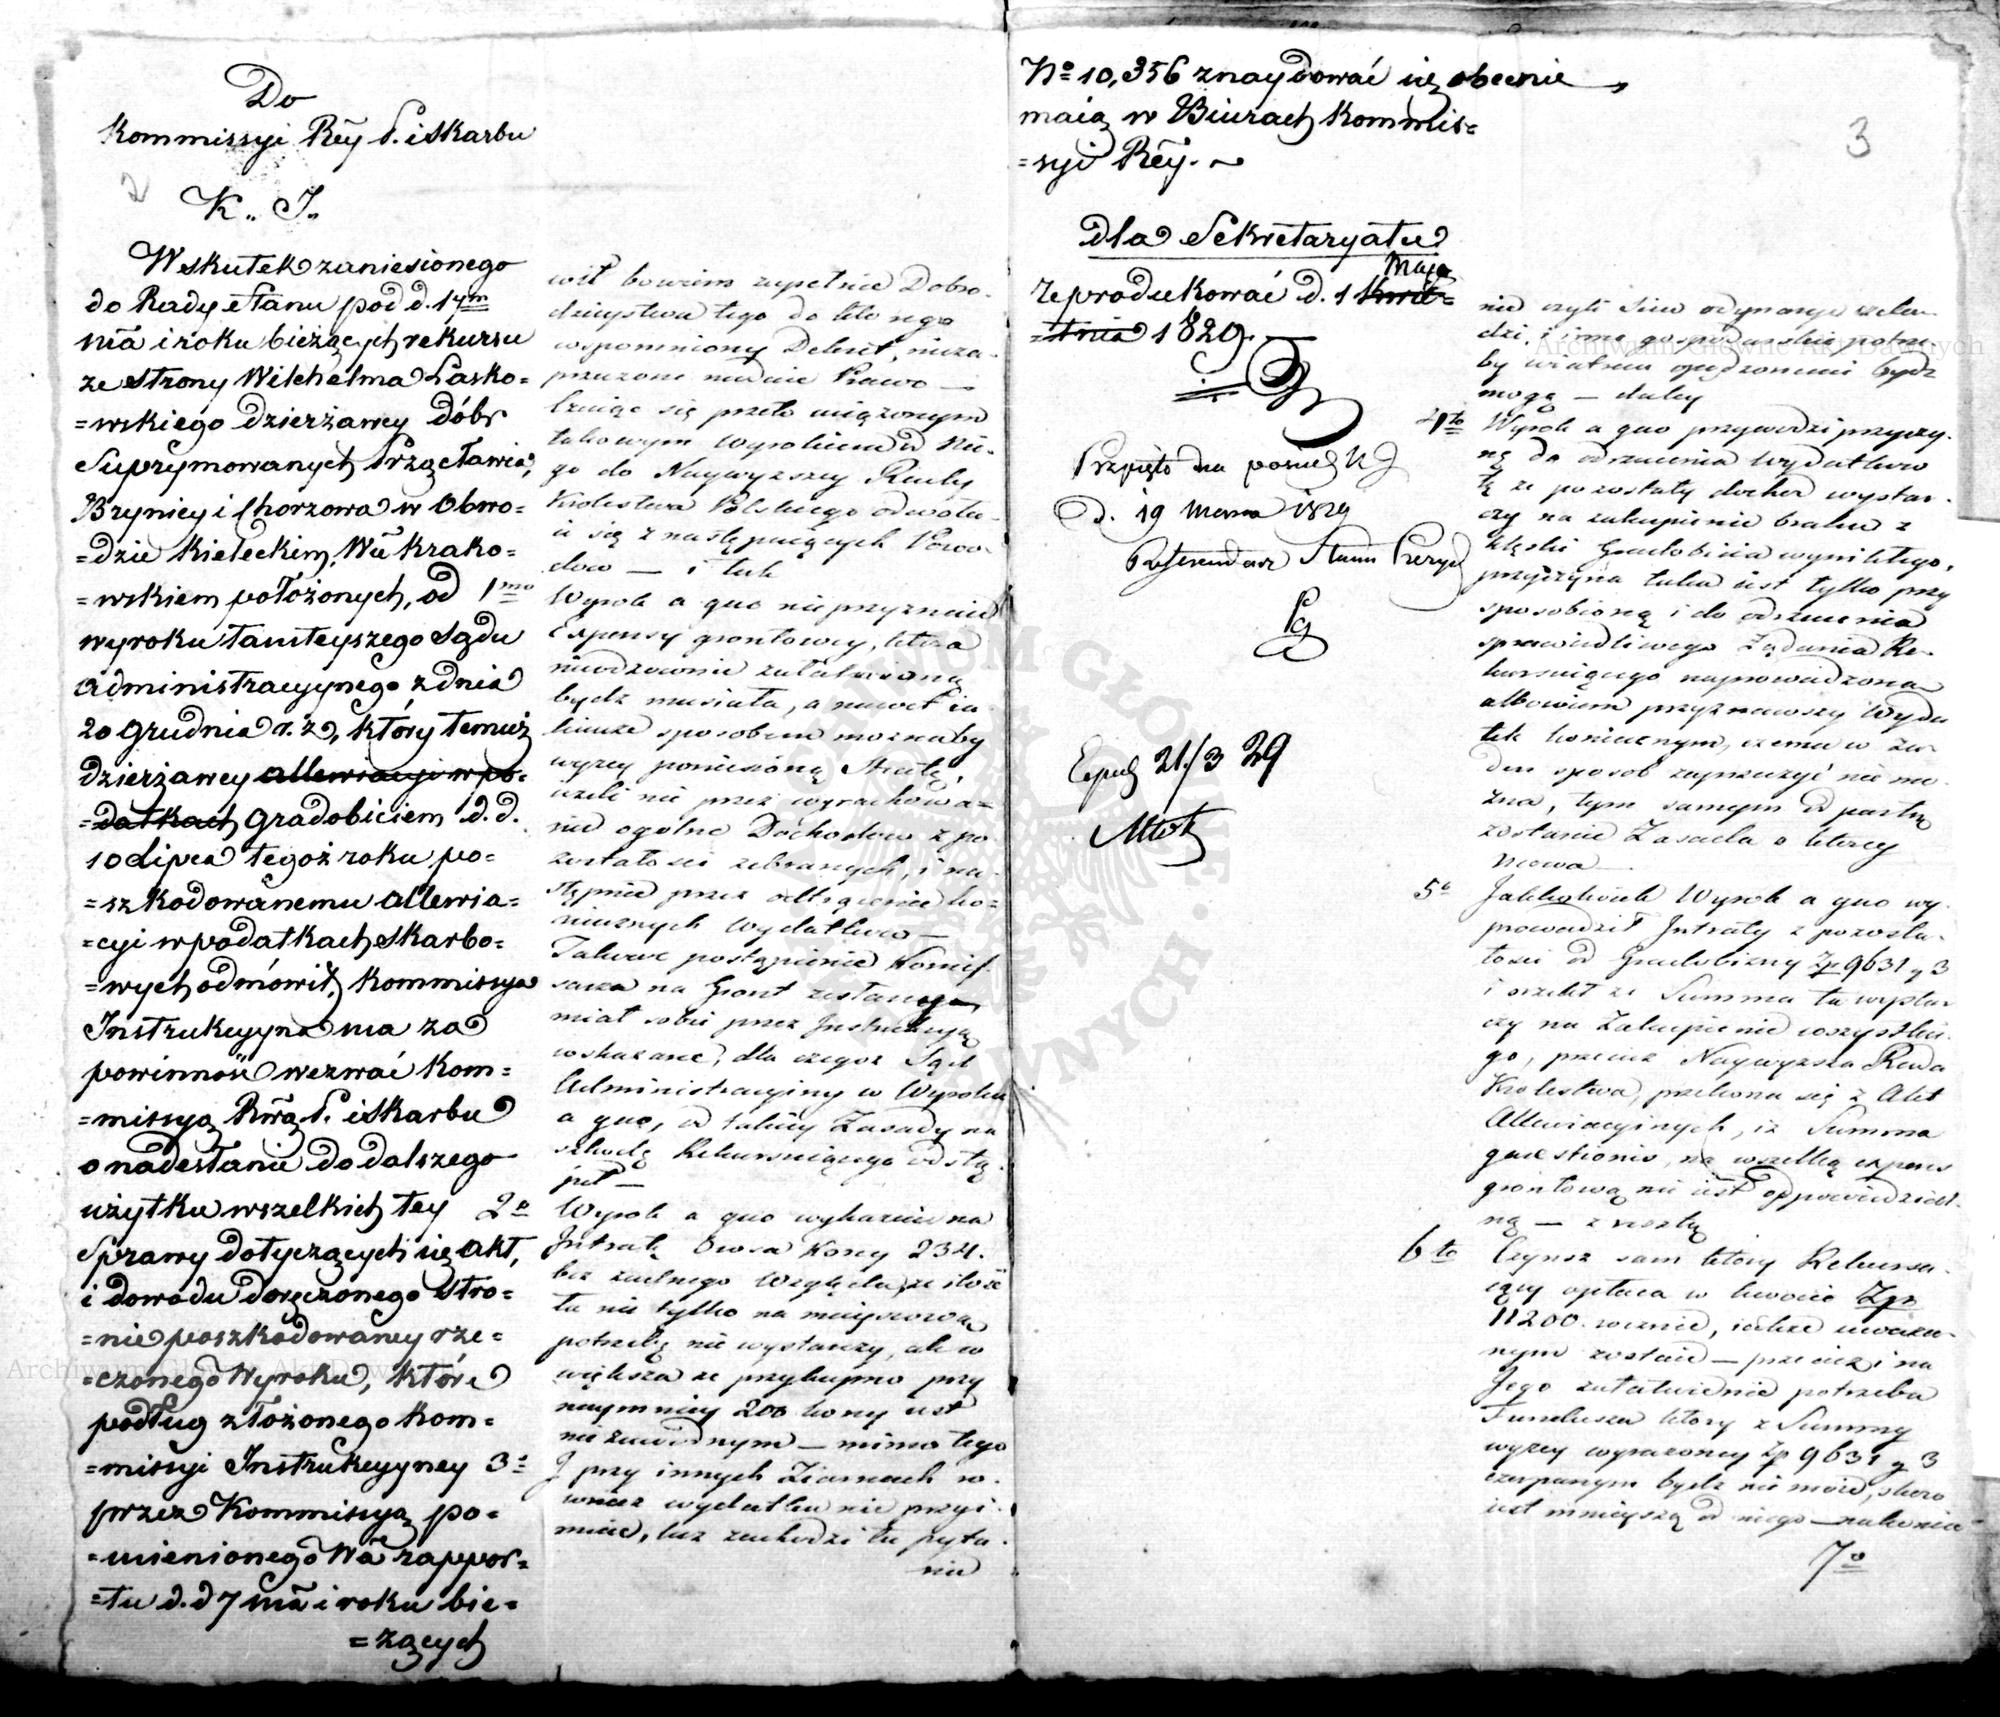 Do
Kommissyi Rěy P. i Skarbu
K. J.
W skutek zaniesionego
do Rady Stanu pod d. 14m
mā i roku bieżących rekursu
ze strony Wilchelma Lasko=
=wskiego dzierżawcy dóbr
Suprymowanych Przęcławia,
Brynicy i Chorzowa w Obwo=
=dzie Kieleckim, Wā Krako=
=wskiem położonych, od 1mo
wyroku tamteyszego Sądu
Administracyynego z dnia
20 Grudnia r. z., który temuż
dzierżawcy allewiacyi w po=
=datkach gradobiciem d. d.
10 Lipca tegoż roku po=
=szkodowanemu allewia=
=cyi w podatkach Skarbo=
=wych odmówił, Kommissya
Instrukcyyna ma za
powinność wezwać Kom=
=missyą Rwą P. i Skarbu
o nadesłanie do dalszego
użytku wszelkich tey
Sprawy dotyczących się akt,
i dowodu doręczonego stro=
=nie poszkodowaney rze=
=czonego Wyroku, które
podług złożonego Kom=
=missyi Instrukcyyney
przez Kommissyą po=
=mienionego Wā rappor=
=tu d. d 7 mā i roku bie=
=żących
wił bowiem zupełnie Dobro-
dzieystwa tego do które go
wspomniony Dekret, nieza-
przeczone nadaie Prawo —
Czuiąc się przeto uciążonym
takowym Wyrokiem od Nie-
go do Naywyższey Rady
Krolestwa Polskiego odwołu-
ie się z następuiących Powo-
dow — i tak
Wyrok a quo nieprzyznaie
Expensy grontowey, która
nieodzownie załatwioną
bydź musiała, a nawet ia-
kimże sposobem można by
wyżey poniesioną stratę,
ieżeli nie przez wyrachowa=
nie ogolne Dochodow z po-
zostałości zebranych, i na-
stępnie przez odtrącenie ko=
niecznych Wydatkow —
Takowe postąpienie Kommis-
sarza na Gront zesłanego
miał sobie przez Instrukcyą
wskazane, dla czegoż Sąd
Administracyiny w Wyroku
a quo, od takiey Zasady na
szkodę Rekursuiącego odstą-
pił —
2o Wyrok a quo wykazuie na
Intratę Owsa Korcy 234.
bez żadnego Względu, że ilość
ta nie tylko na mieyscową
potrzebę nie wystarczy, ale w
większa że przykupno przy
naymniey 200 korcy iest
nie zawodnym — mimo tego
3o J przy innych Ziarnach ro-
wnież wydatku nie przyi-
muie, lecz zachodzi tu pyta-
nie
No 10,356 znaydować się obecnie
maią w Biurach Kommis=
=syi Rěy.
3
dla Sekretaryatu
Maja
Zeprodukować d. 1 Kwie=
=tnia 1829.
Przyięto na posiedz K J
d. 19 Marca 1829
Referendarz Stanu Prezyd
Exped 21/3 29
nie czyli Siew ordynarya czela-
dzi, i inne gospodarskie potrze-
by wiatrem opędzonemi bydź
mogą — daley
4to Wyrok a quo przywodzi przyczy-
nę do odrzucenia Wydatkow
tę że pozostały dochod wystar-
czy na zakupienie braku z
klęski Gradobicia wynikłego,
przyczyna taka iest tylko przy
sposobioną i do odrzucenia
sprawiedliwego Żądania Re-
kursuiącego naprowadzona
albowiem przyznawszy Wyda
tek koniecznym, czemu w ża-
den sposob zaprzeczyć nie mo-
żna, tym samym od parta
zostanie Zasada o ktorey
mowa —
5o Jakkolwiek Wyrok a quo wy-
prowadził Intraty z pozosta-
łości od Gradobiciny Zp 9631 g 3
i orzekł że Summa ta wystar
czy na Zakupienie wszystkie-
go, przecież Naywyższa Rada
Krolestwa, przekona się z Akt
Allewiacyinych, iż Summa
quaestionis, na wszelką expens
grontową nie iest odpowiedział
ną — z resztą
6to Czynsz sam ktory Rekursu-
iący opłaca w kwocie Zp
11200. rocznie, iakże uważa-
nym zostaie — przecież i na
Jego załatwienie potrzeba
Funduszu ktory z Summy
wyżey wyrażoney Zp 9631 g 3
czerpanym bydź nie może, skoro
iest mnieyszą od niego — nakoniec
7o